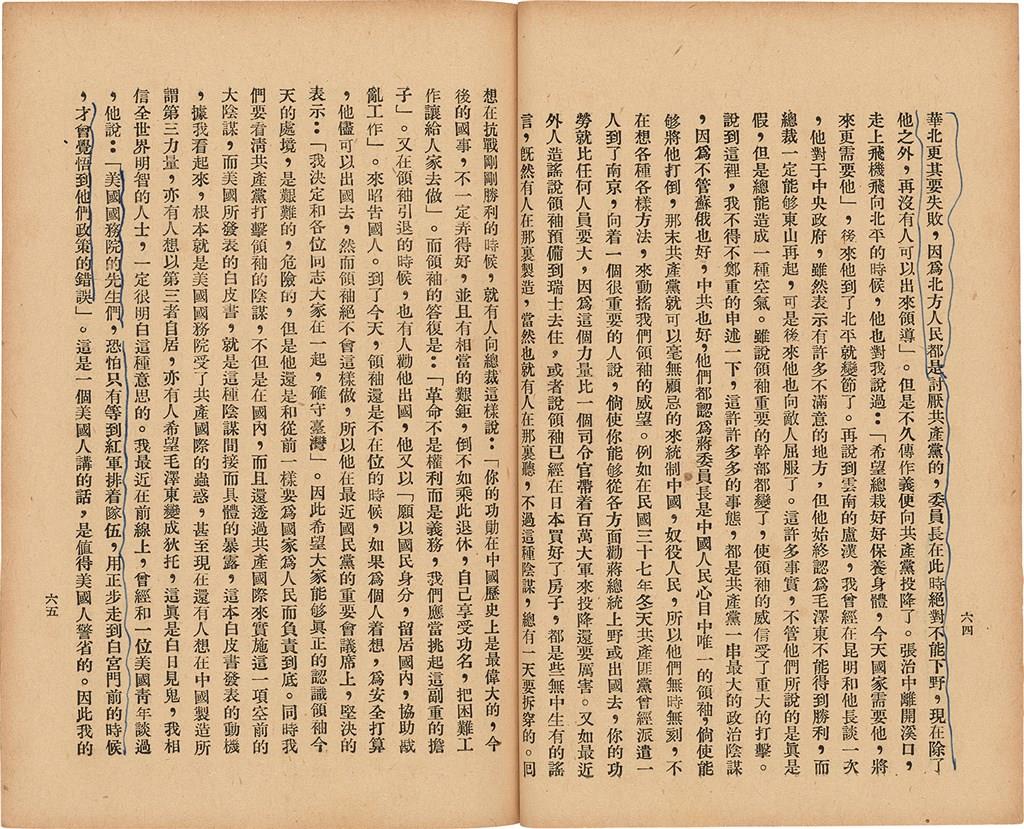 華北更其要失敗，因爲北方人民都是討厭共產黨的，委員長在此時絕對不能下野，現在除了
他之外，再沒有人可以出來領導」。但是不久傳作義便向共產黨投降了。張治中離開溪口，
走上飛機飛向北平的時候，他也對我說過：「希望總裁好好保養身體，今天國家需要他，將
來更需要他」，後來他到了北平就變節了。再說到雲南的盧漢，我曾經在昆明和他長談一次
，他對于中央政府，雖然表示有許多不滿意的地方，但他始終認爲毛澤東不能得到勝利，而
總裁一定能够東山再起，可是後來他也向敵人屈服了。這許多事實，不管他們所說的是眞是
假，但是總能造成一種空氣。雖說領袖重要的幹部都變了，使領袖的威信受了重大的打擊。
說到這裡，我不得不鄭重的申述一下，這許許多多的事態，都是共產黨一串最大的政治陰謀
，因爲不管蘇俄也好，中共也好，他們都認爲蔣委員長是中國人民心目中唯一的領袖，倘使能
够將他打倒，那末共產黨就可以毫無顧忌的來統制中國，奴役人民，所以他們無時無刻，不
在想各種各樣方法，來動搖我們領袖的威望。例如在民國三十七年冬天共產匪黨曾經派遣一
人到了南京，向着一個很重要的人說，倘使你能够從各方面勸蔣總統上野或出國去，你的功
勞就比任何人員要大，因爲這個力量比一個司令官帶着百萬大軍來投降還要厲害。又如最近
外人造謠說領袖預備到瑞士去住，或者說領袖已經在日本買好了房子，都是些無中生有的謠
言，旣然有人在那裏製造，當然也就有人在那裏聽，不過這種陰謀，總有一天要拆穿的。回
六四
想在抗戰剛剛勝利的時候，就有人向總裁這樣說：「你的功勛在中國歷史上是最偉大的，今
後的國事，不一定弄得好，並且有相當的艱鉅，倒不如乘此退休，自己享受功名，把困難工
作讓給人家去做」。而領袖的答復是：「革命不是權利而是義務，我們應當挑起這副重的擔
子」。又在領袖引退的時候，也有人勸他出國，他又以「願以國民身分，留居國內，協助戡
亂工作」。來昭吿國人。到了今天，領袖還是不在位的時候，如果爲個人着想，爲安全打算
，他儘可以出國去，然而領袖絕不會這樣做，所以他在最近國民黨的重要會議席上，堅決的
表示：「我決定和各位同志大家在一起，確守臺灣」。因此希望大家能够眞正的認識領袖今
天的處境，是艱難的，危險的，但是他還是和從前一樣要爲國家爲人民而負責到底。同時我
們要看淸共產黨打擊領袖的陰謀，不但是在國內，而且還透過共產國際來實施這一項空前的
大陰謀，而美國所發表的白皮書，就是這種陰謀間接而具體的暴露，這本白皮書發表的動機
，據我看起來，根本就是美國國務院受了共產國際的蠱惑，甚至現在還有人想在中國製造所
謂第三力量，亦有人想以第三者自居，亦有人希望毛澤東變成狄托，這眞是白日見鬼，我相
信全世界明智的人士，一定很明白這種意思的。我最近在前線上，曾經和一位美國靑年談過
，他說：「美國國務院的先生們，恐怕只有等到紅軍排着隊伍，用正步走到白宮門前的時候
，才會覺悟到他們政策的錯誤」。這是一個美國人講的話，是值得美國人警省的。因此我的
六五